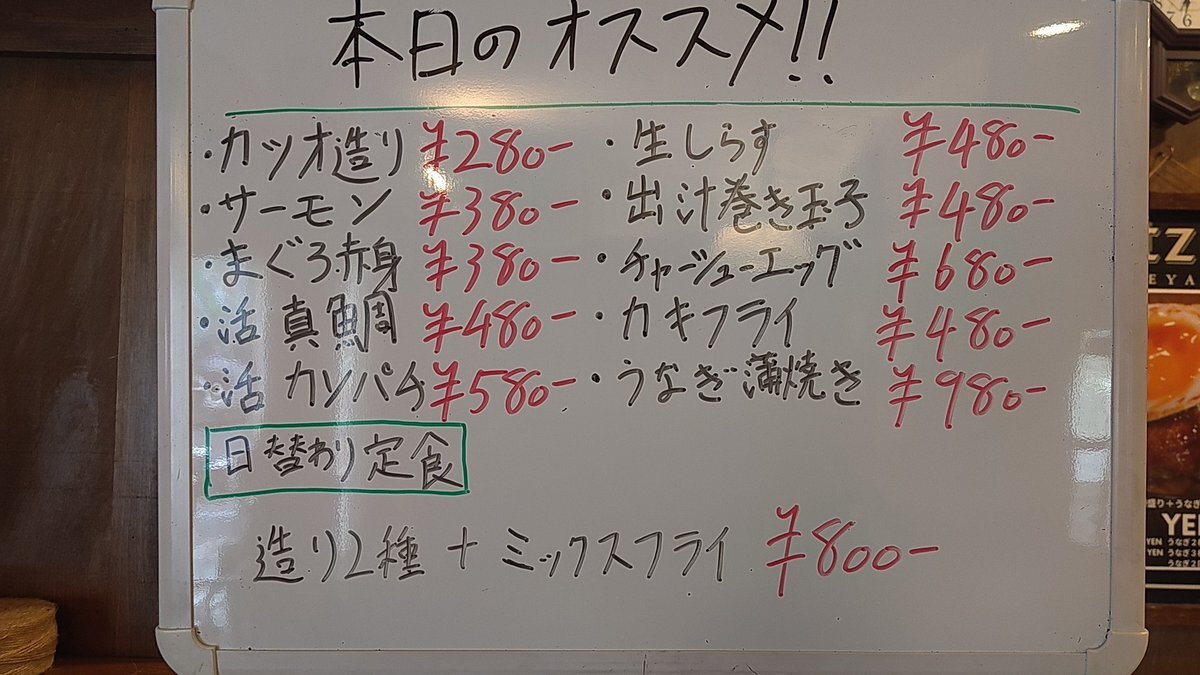 本日のオススメ!!
・カツオ造り ¥280-
・サーモン ¥380-
・まぐろ赤身 ¥380-
・活 真鯛 ¥480-
・活 カンパチ ¥580-
・生しらす ¥480-
・出汁巻き玉子 ¥480-
・チャーシューエッグ ¥680-
・カキフライ ¥480-
・うなぎ蒲焼き ¥980-
日替わり定食
造り2種 + ミックスフライ ¥800-
YEN